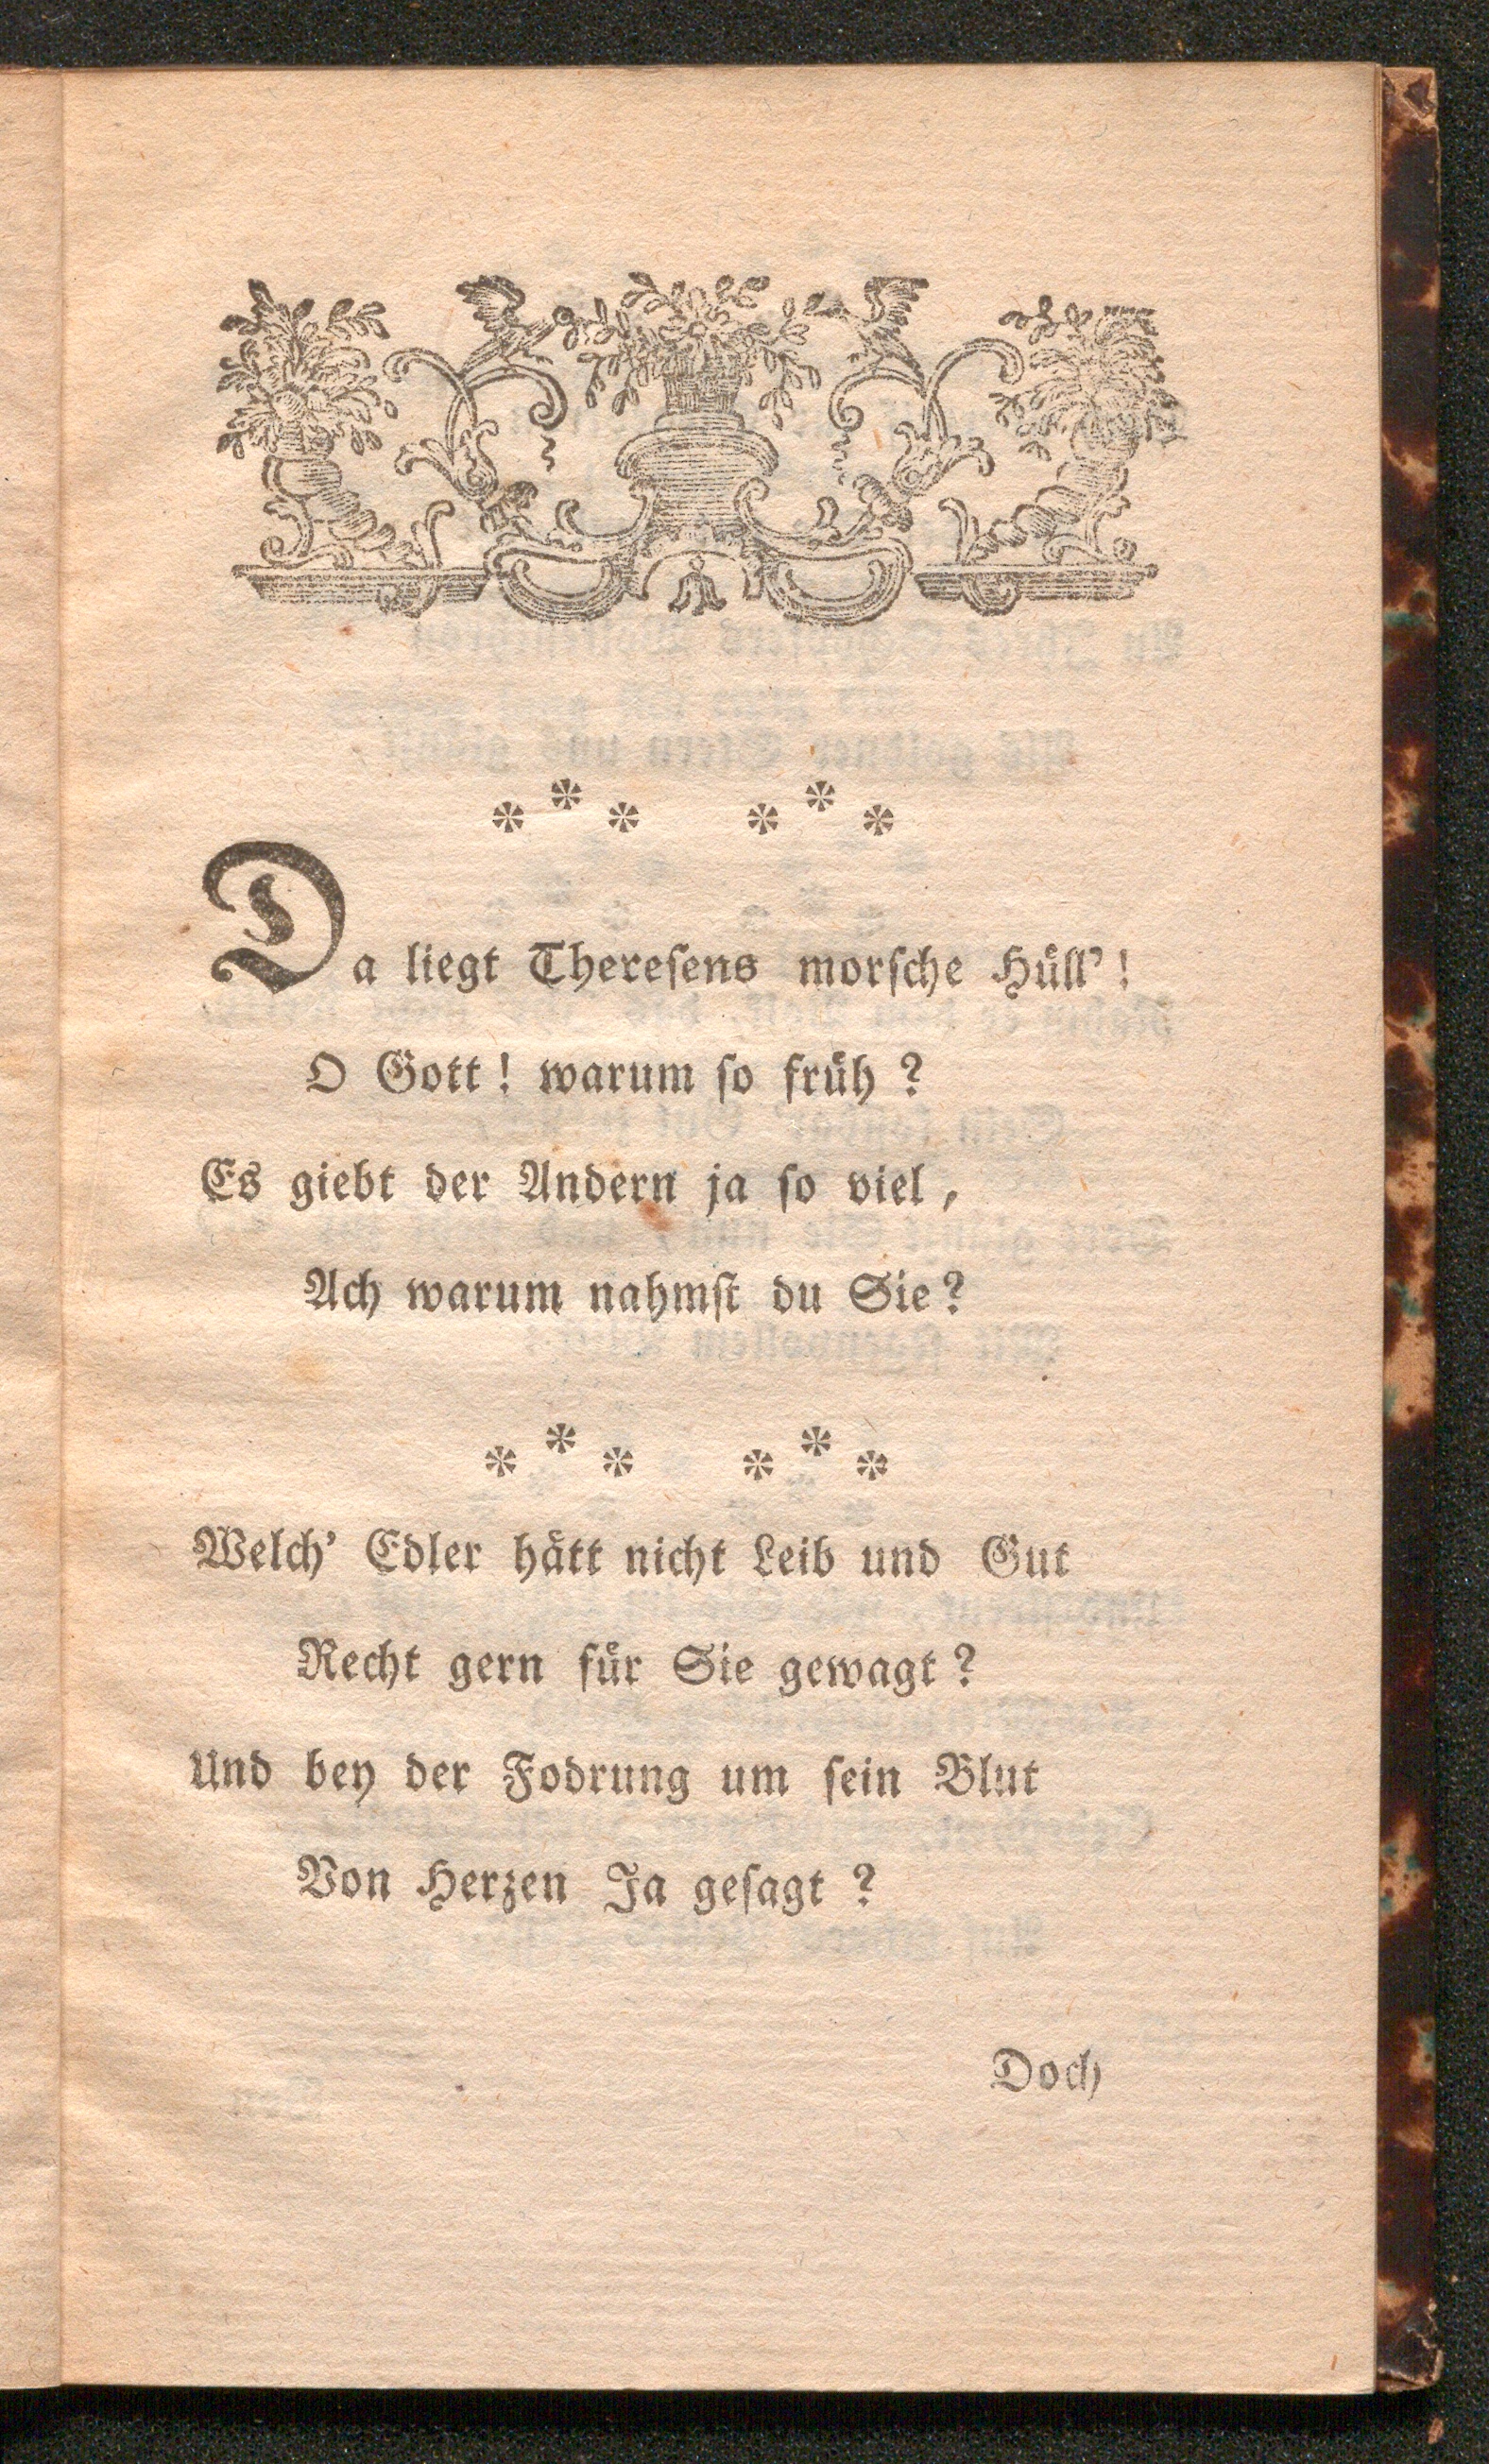 * * * * * *
Da liegt Thereſens morſche Huͤll’!
O Gott! warum ſo fruͤh?
Es giebt der Andern ja ſo viel,
Ach warum nahmſt du Sie?
* * * * * *
Welch’ Edler haͤtt nicht Leib und Gut
Recht gern fuͤr Sie gewagt?
Und bey der Fodrung um ſein Blut
Von Herzen Ja geſagt?
Doch